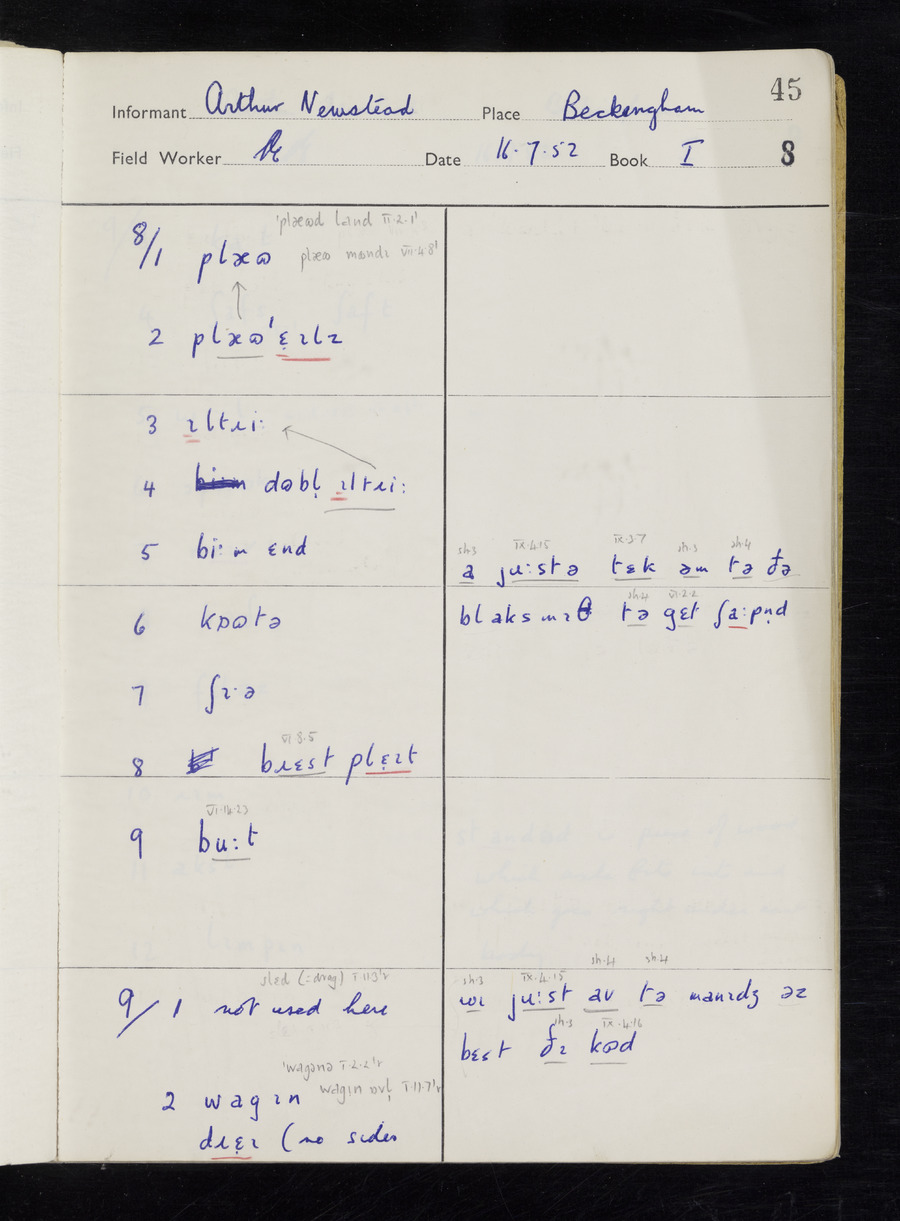 45
Informant Arthur Newstead Place Beckingham
Field Worker Date 16.7.52 Book I 8
'plæɷd land II.2.1'
8/1 plæɷ plæɷ mɷndɪ VII.4.8'
2 plæɷ'ɛ̣ɪlz
3 ɪltɹiː
4 dɷbl̩ ɪltɹiː
5 biːm ɛnd
sh.3 IX.4.15 IX.3.7 sh.3 sh.4
a juːstə tɛk əm tə ðə
6 kɒɷtə
sh.4 VI.2.2
blaksmɪθ tə gɛt ʃaːpn̩d
7 ʃɪ·ə
VI.8.5
8 bɹɛst plɛ̣ɪt
VI.14.23
9 buːt
sh.4 sh.4
slɛd (=drag) I.11.3'r
9/1 not used here
sh.3 IX.4.15
wɪ juːst av tə manɪdʒ əz
sh.3 IX.4.16
bɛst ðɪ kɷd
'wagənə I.2.2'r
2 wagɪn wagɪn ɒvl̩ I.11.7'r
dɹɛ̣ɪ (no sides